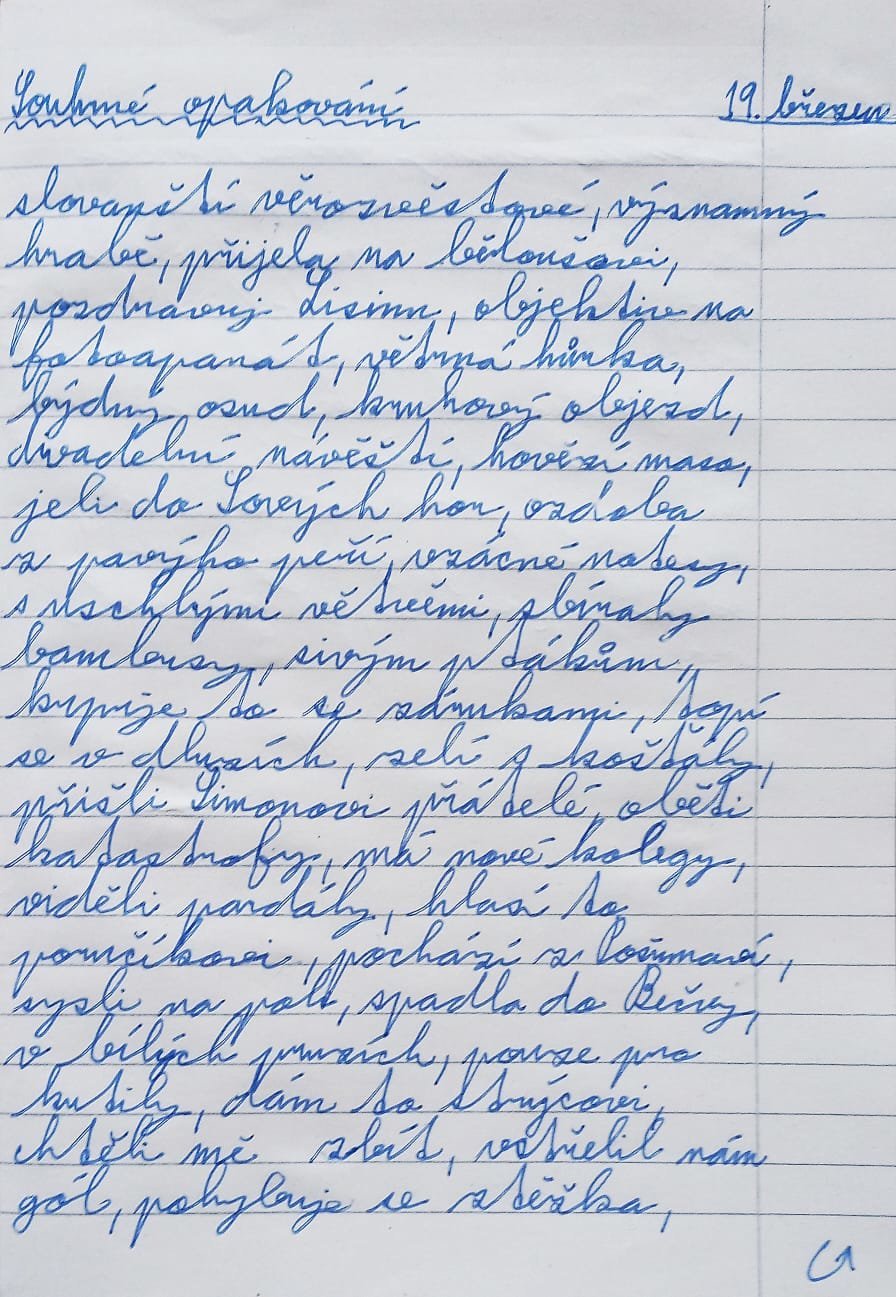 Souhrné opakování 19. březen
slovanští věrozvěstové, významný
hrabě, přijela na běloušovi,
pozdravuj Lisinu, objektiv na
fotoaparát, větrná hůrka,
býdný osud, kruhový objezd,
divadelní návěští, hovězí maso,
jeli do Sových hor, ozdoba
z pavýho peří, vzácné notesy,
s uschlými větvěmi, sbíraly
bambusy, sivým ptákům,
kupuje to se zárukami, topí
se v dluzích, zelí s košťály,
přišli Šimonovi přátelé, oběti
katastrofy, má nové kolegy,
viděli pardály, hlasí to
poručíkovi, pochází z Pošumaví,
sysli na poli, spadla do Bečvy,
v bílých pruzích, pouze pro
kutily, dám to strýcovi,
chtěli mě zbít, vstřelil nám
gól, pohybuje se ztěžka,